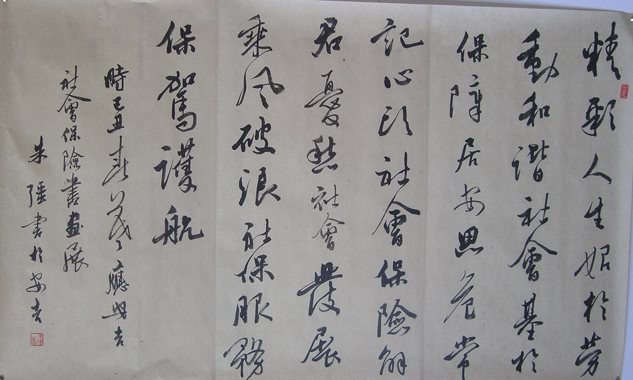 精彩人生始於勞
動和諧社會基於
保障居安思危常
記心頭社會保險解
君憂愁社會發展
乘風破浪社保服務
保駕護航
時己丑春應安吉
社會保險書畫展
朱強書於安吉